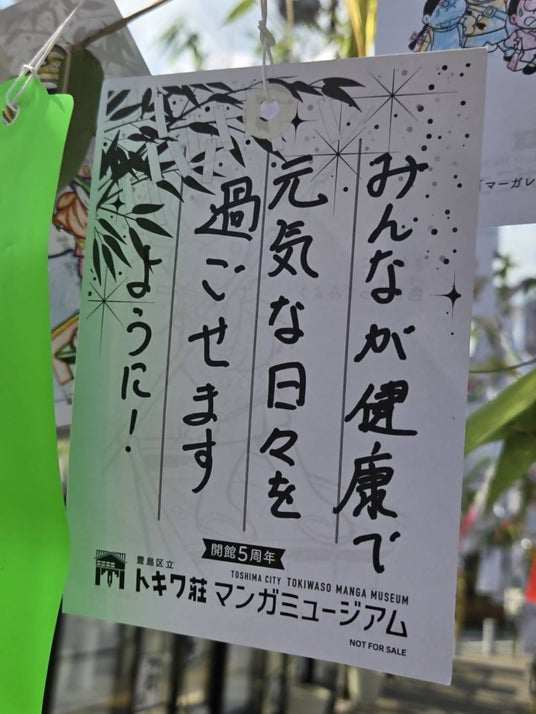 みんなが健康で
元気な日々を
過ごせます
ように!
開館5周年
豊島区立
TOSHIMA CITY TOKIWASO MANGA MUSEUM
トキワ荘マンガミュージアム
NOT FOR SALE
「マーガレ